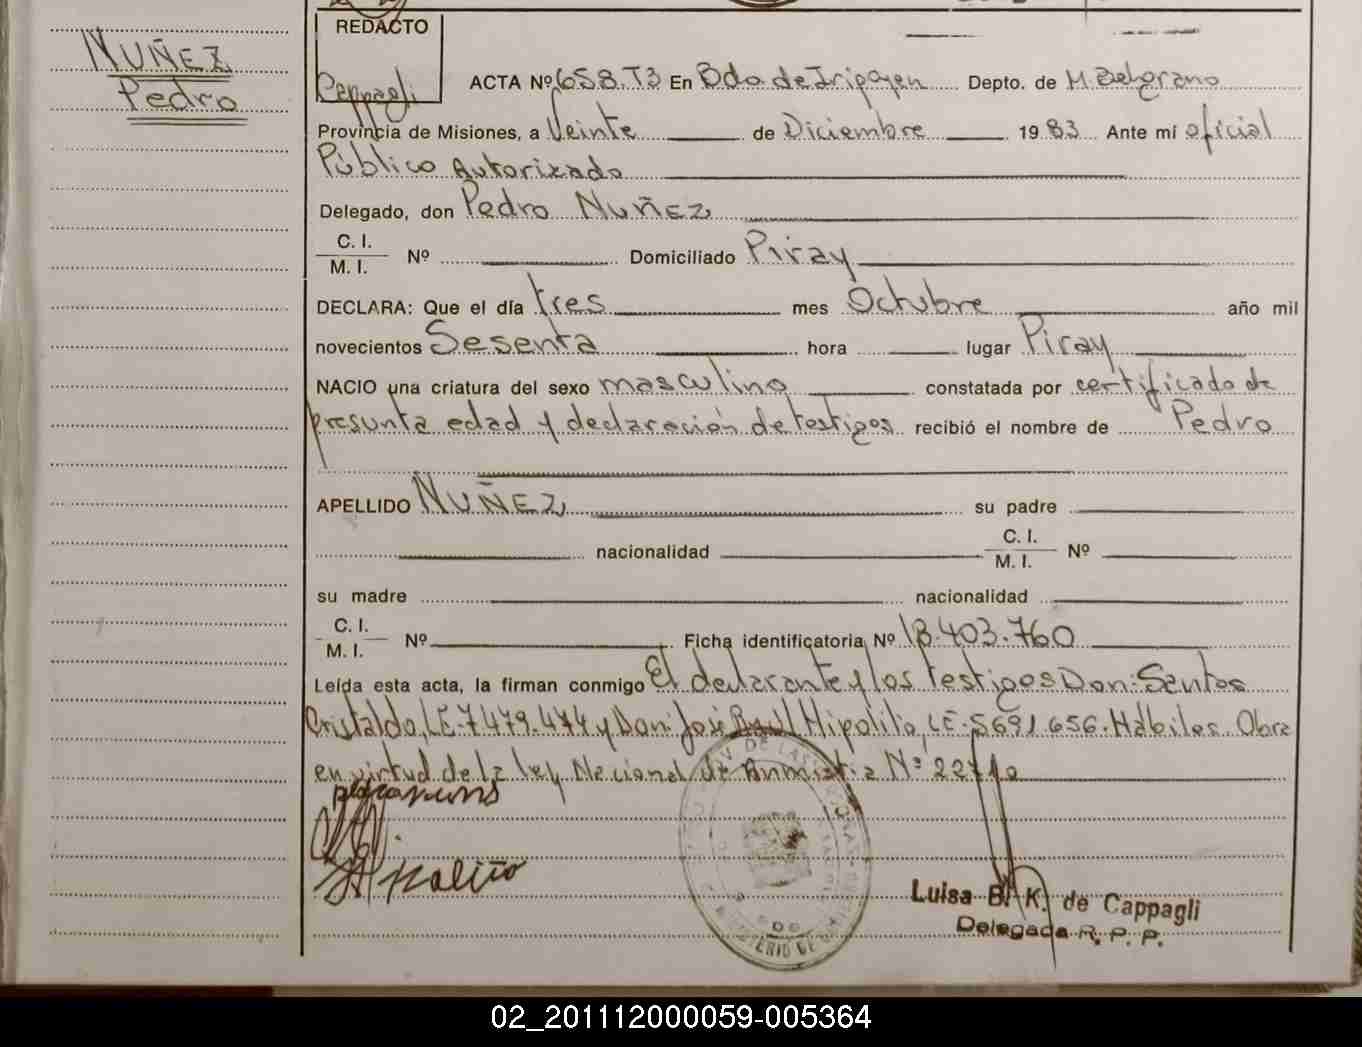 NUÑEZ
Pedro
REDACTO
Cappagli
ACTA Nº 658.T3 En Bdo de Irigoyen Depto. de M. Belgrano
Provincia de Misiones, a Veinte de Diciembre 1983 Ante mí oficial
Público Autorizado
Delegado, don Pedro NUÑEZ
C. I.
M. I. Nº Domiciliado Piray
DECLARA: Que el día tres mes Octubre año mil
novecientos Sesenta hora lugar Piray
NACIO una criatura del sexo masculino constatada por certificado de
presunta edad y declaración de testigos recibió el nombre de Pedro
APELLIDO NUÑEZ su padre
nacionalidad C. I.
M. I. Nº
su madre nacionalidad
C. I.
M. I. Nº Ficha identificatoria Nº 18.403.760
Leída esta acta, la firman conmigo El declarante y los testigos Don: Santos
Cristaldo, LE-7479.474 y Don: José Raúl Hipolito, LE-5691.656. Hábiles. Obra
en virtud de la ley Nacional de Anmistia Nº
Luisa B. K. de Cappagli
Delegada R. P. P.
02_201112000059-005364